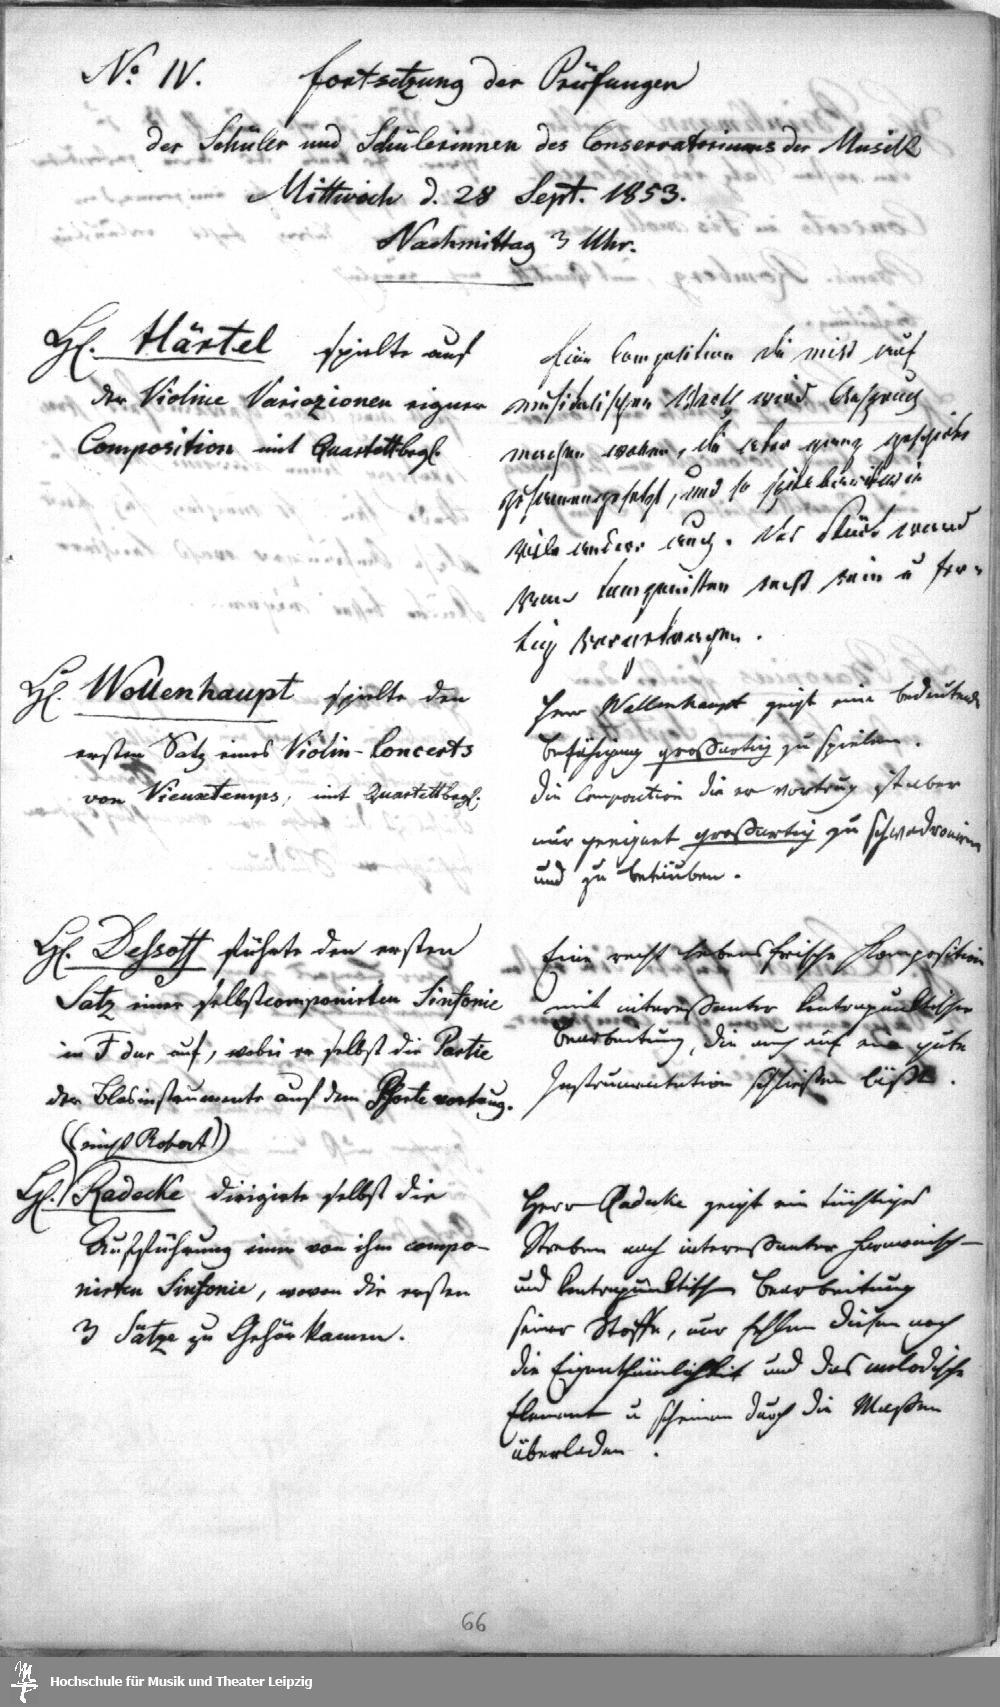 No. IV. Fortsetzung der Prüfungen
der Schüler und Schülerinnen des Conservatoriums der Musik
Mittwoch d. 28 Sept. 1853.
Nachmittag 3 Uhr.
H. Härtel spielte auf
der Violine Variazionen eigner
Composition mit Quartettbegl.
Eine Composition die nicht auf
musikalischen Werth Anspruch
machen, die aber ganz geschickt
zusammengesetzt, und so
viele andere auch. Das Stück ward
vom Componisten recht rein u fer-
tig vorgetragen.
H. Wollenhaupt spielte den
ersten Satz eines Violin-Concerts
von Vieuxtemps, mit Quartettbegl.
Herr Wollenhaupt zeigt eine bedeutende
Befähigung großartig zu spielen.
die Composition die er vortrug ist aber
nur geeignet großartig zu schwadroniren
und zu betäuben.
H. Dessoff führte den ersten
Satz einer selbstcomponirten Sinfonie
in F dur auf, wobei er selbst die Partie
der Blasinstrumente auf dem Pforte vortrug.
Eine recht lebensfrische Komposition
mit interessanter kontrapunktischer
Bearbeitung, die auch auf eine gute
Instrumentation schließen läßt.
(nicht Robert)
H. Radecke dirigirte selbst die
Aufführung einer von ihm compo-
nirten Sinfonie, wovon die ersten
3 Sätze zu Gehör kamen.
Herr Radecke zeigt ein tüchtiges
Streben nach interessanter harmonisch-
und kontrapunktischer Bearbeitung
seiner Stoffe, nur fehlen diesen noch
die Eigenthümlichkeit und das melodische
Element u scheinen durch die Massen
überladen.
66
Hochschule für Musik und Theater Leipzig